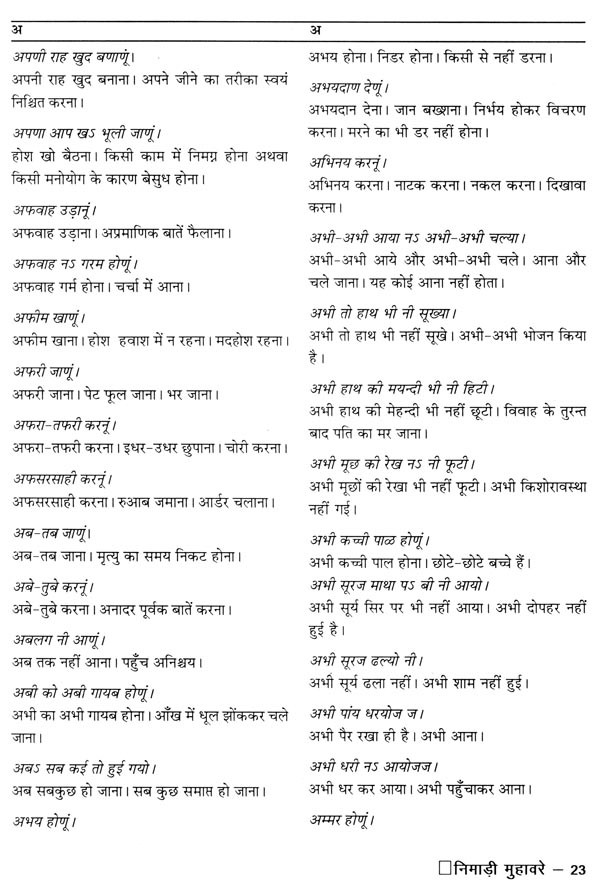 अ
अपणी राह खुद बणाणूं।
अपनी राह खुद बनाना। अपने जीने का तरीका स्वयं
निश्चित करना।
अपणा आप खऽ भूली जाणूं।
होश खो बैठना। किसी काम में निमग्न होना अथवा
किसी मनोयोग के कारण बेसुध होना।
अफवाह उड़ानूं।
अफवाह उड़ाना। अप्रमाणिक बातें फैलाना।
अफवाह नऽ गरम होणूं।
अफवाह गर्म होना। चर्चा में आना।
अफीम खाणूं।
अफीम खाना। होश हवाश में न रहना। मदहोश रहना।
अफरी जाणूं।
अफरी जाना। पेट फूल जाना। भर जाना।
अफरा-तफरी करनूं।
अफरा-तफरी करना। इधर-उधर छुपाना। चोरी करना।
अफसरसाही करनूं।
अफसरसाही करना। रुआब जमाना। आर्डर चलाना।
अब-तब जाणूं।
अब-तब जाना। मृत्यु का समय निकट होना।
अबे-तुबे करनूं।
अबे-तुबे करना। अनादर पूर्वक बातें करना।
अबलग नी आणूं।
अब तक नहीं आना। पहुँच अनिश्चय।
अबी को अबी गायब होणूं।
अभी का अभी गायब होना। आँख में धूल झोंककर चले
जाना।
अबऽ सब कई तो हुई गयो।
अब सबकुछ हो जाना। सब कुछ समाप्त हो जाना।
अभय होणूं।
अ
अभय होना। निडर होना। किसी से नहीं डरना।
अभयदाण देणूं।
अभयदान देना। जान बख्शना। निर्भय होकर विचरण
करना। मरने का भी डर नहीं होना।
अभिनय करनूं।
अभिनय करना। नाटक करना। नकल करना। दिखावा
करना।
अभी-अभी आया नऽ अभी-अभी चल्या।
अभी-अभी आये और अभी-अभी चले। आना और
चले जाना। यह कोई आना नहीं होता।
अभी तो हाथ भी नी सूख्या।
अभी तो हाथ भी नहीं सूखे। अभी-अभी भोजन किया
है।
अभी हाथ की मयन्दी भी नी हिटी।
अभी हाथ की मेहन्दी भी नहीं छूटी। विवाह के तुरन्त
बाद पति का मर जाना।
अभी मूछ की रेख नऽ नी फूटी।
अभी मूछों की रेखा भी नहीं फूटी। अभी किशोरावस्था
नहीं गई।
अभी कच्ची पाळ होणूं।
अभी कच्ची पाल होना। छोटे-छोटे बच्चे हैं।
अभी सूरज माथा पऽ बी नी आयो।
अभी सूर्य सिर पर भी नहीं आया। अभी दोपहर नहीं
हुई है।
अभी सूरज ढल्यो नी।
अभी सूर्य ढला नहीं। अभी शाम नहीं हुई।
अभी पांय धरयोज ज।
अभी पैर रखा ही है। अभी आना।
अभी धरी नऽ आयोजज।
अभी धर कर आया। अभी पहुँचाकर आना।
अम्मर होणूं।
□निमाड़ी मुहावरे – 23